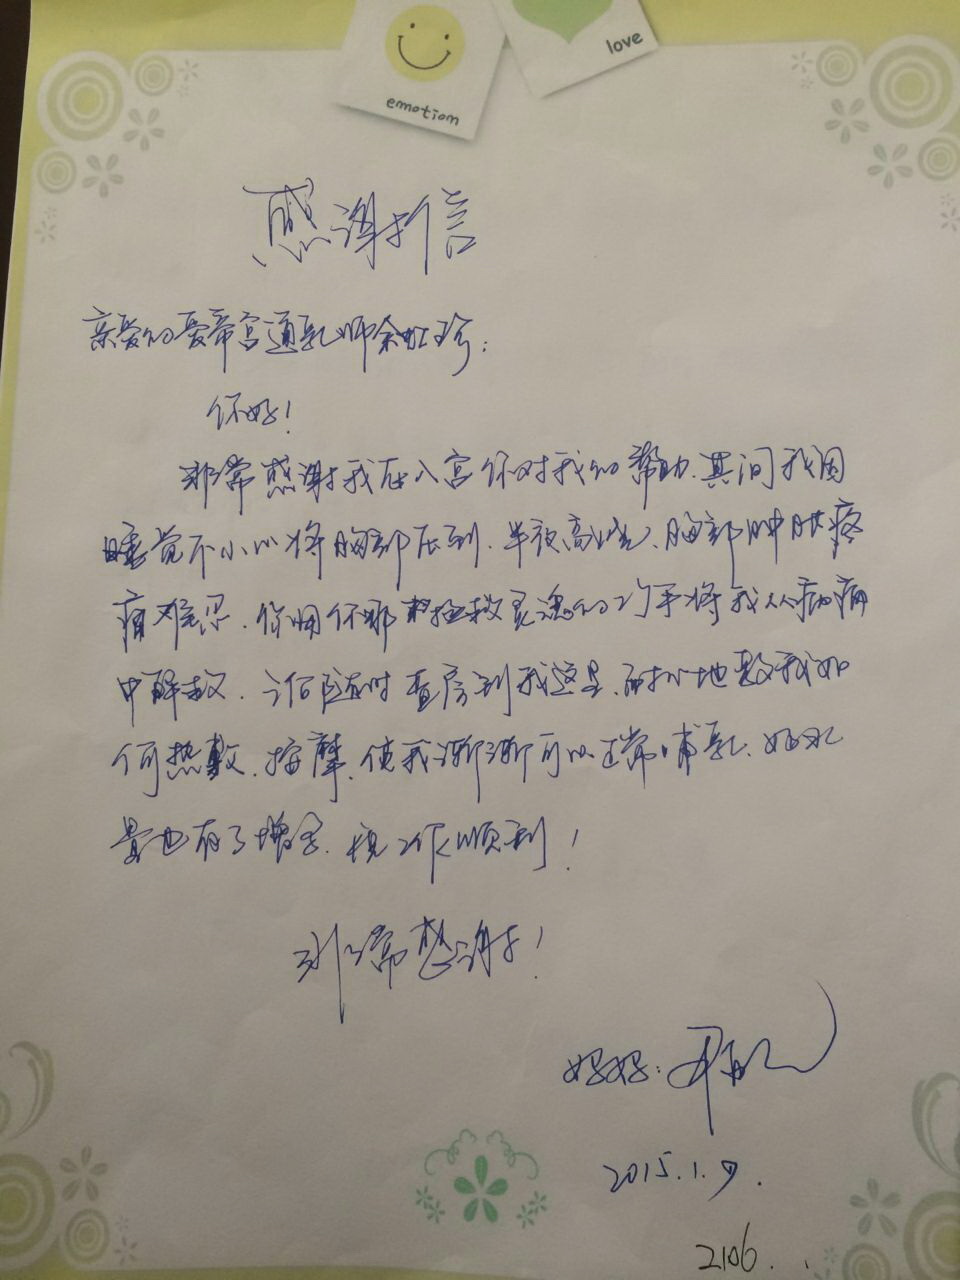 love
emotion
感谢信
亲爱的爱帝宫通乳师余虹珍:
你好!
非常感谢我在入宫你对我的帮助.其间我因
睡觉不小心将胸部压到.半夜高烧、胸部肿胀疼
痛难忍.你用你那拯救灵魂的巧手将我从病痛
中解救.随时查房到我这里.耐心地教我如
何热敷.按摩.使我渐渐可以正常哺乳.奶水
量也有了增多.祝工作顺利!
非常感谢!
妈妈:
2015.1.9.
2106.